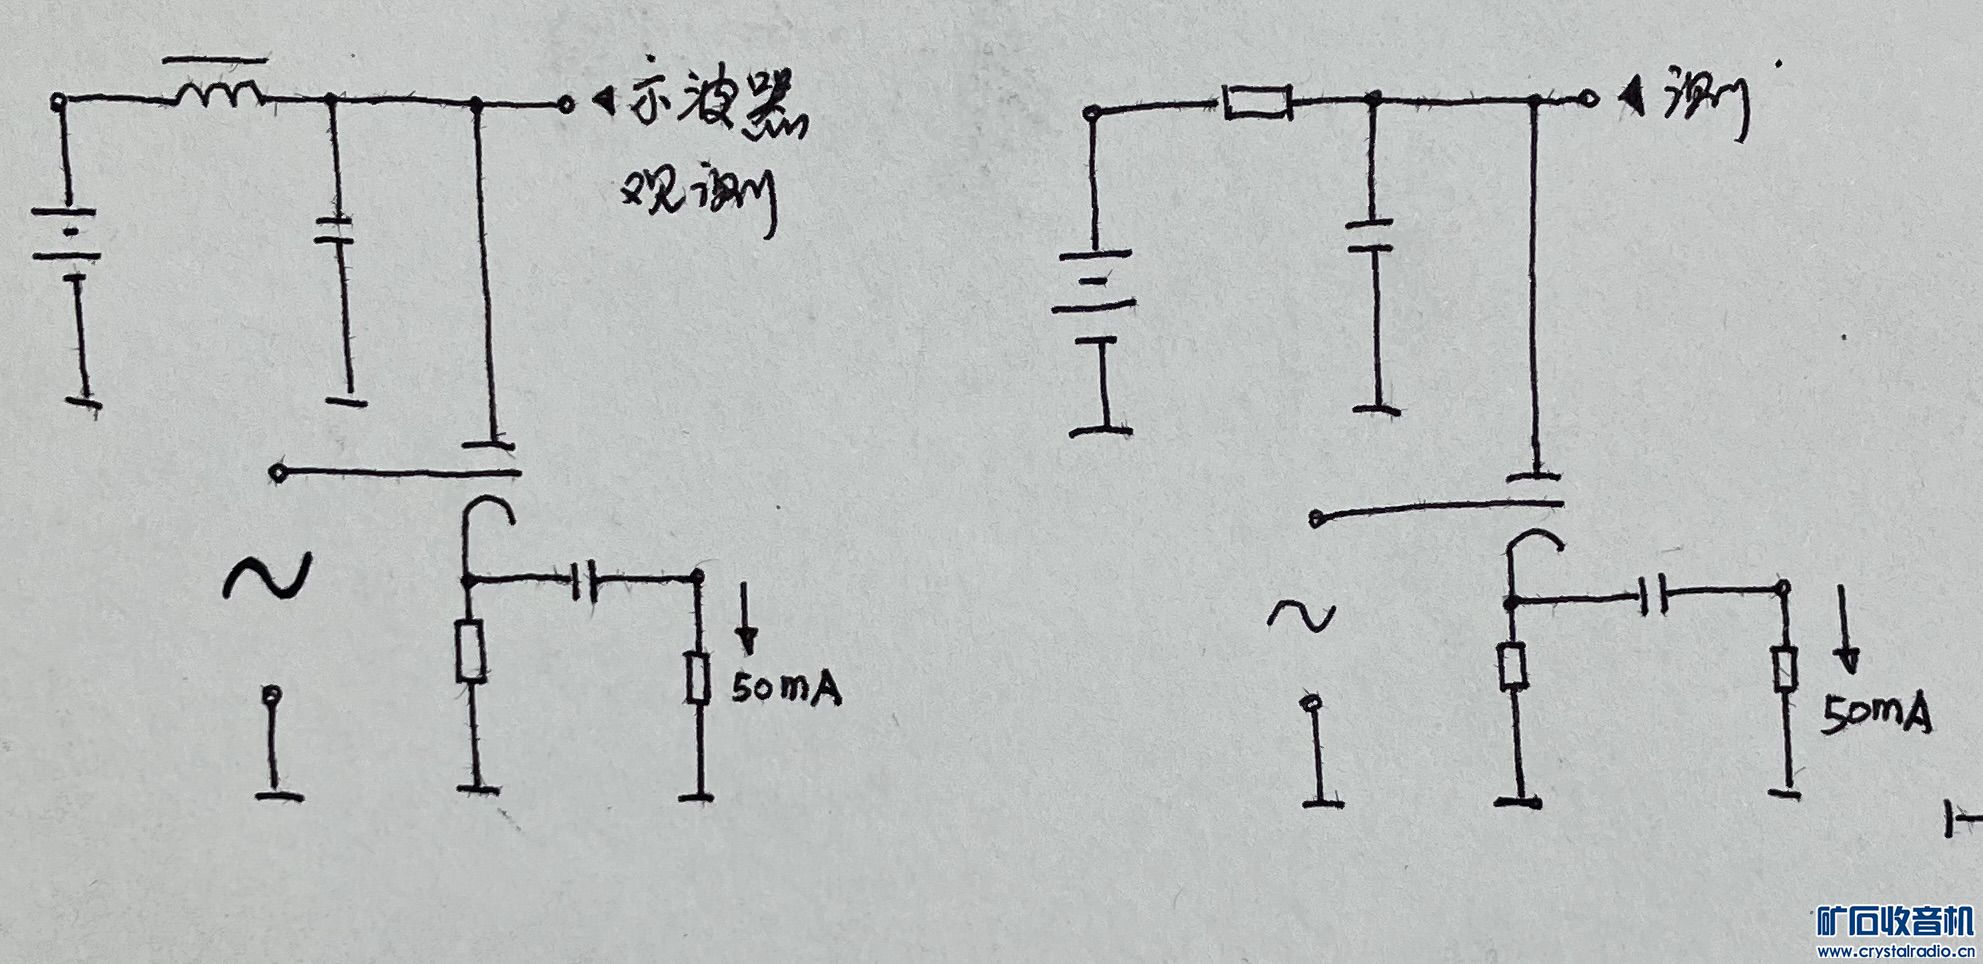 示波器
观测
测
50mA
50mA
矿石收音机
www.crystalradio.cn